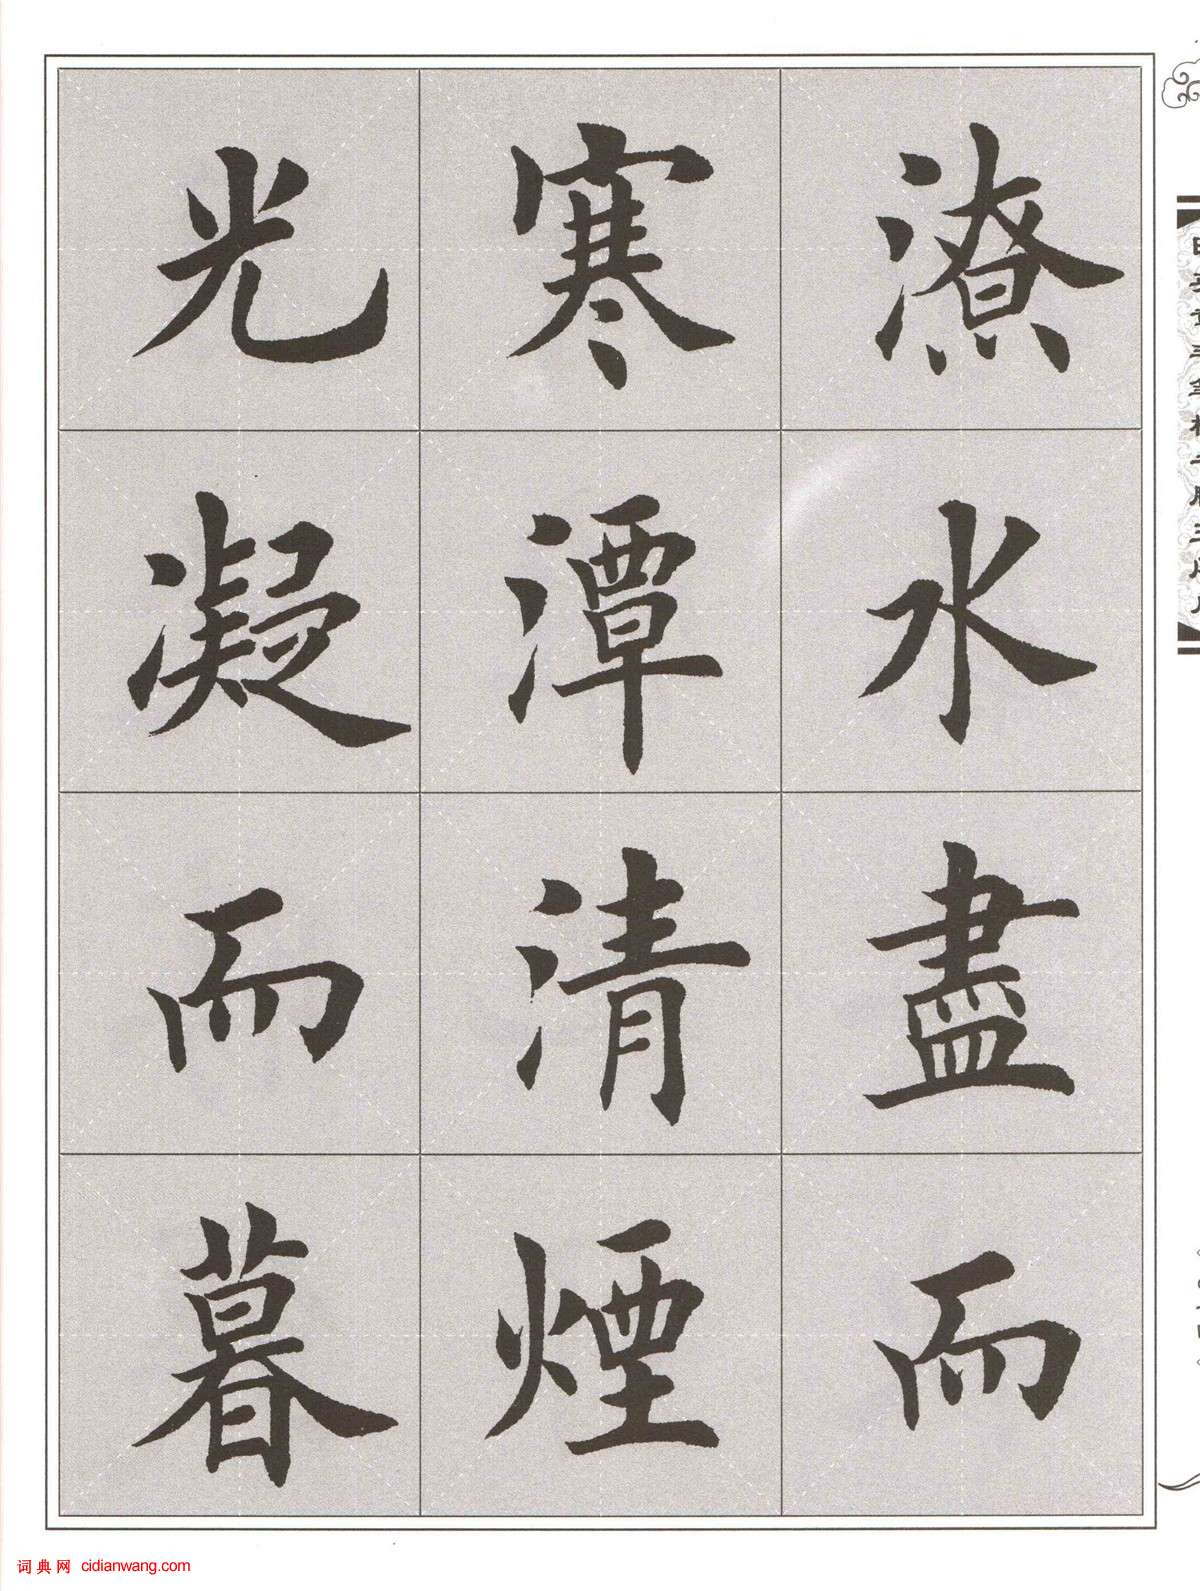 潦水盡而
寒潭清煙
光凝而暮
词典网 cidianwang.com